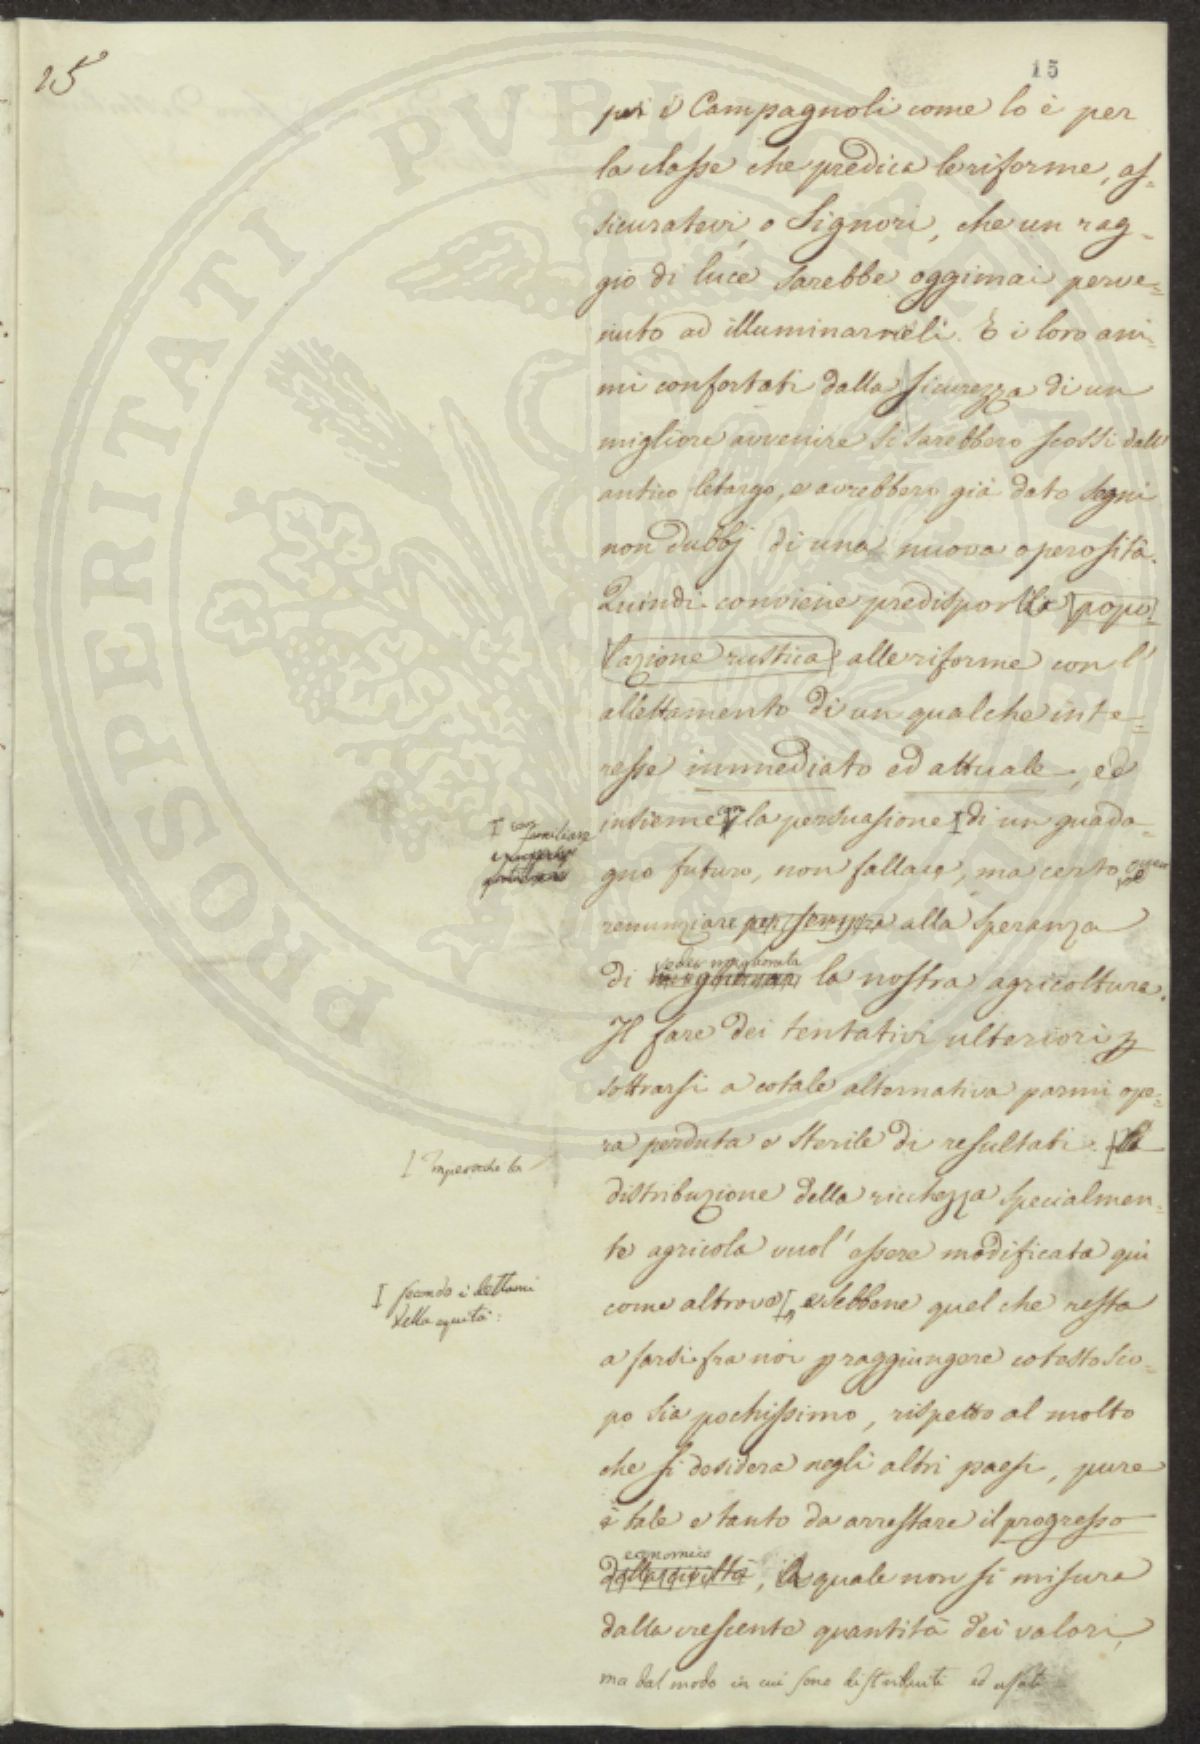 25
15
per i Campagnoli come lo è per
la classe che predica le riforme, as-
sicuratevi, o Signori, che un rag-
gio di luce sarebbe oggimai perve=
nuto ad illuminarneli. E i loro ani-
mi confortati dalla sicurezza di un
migliore avvenire si sarebbero scossi dall'
antico letargo, e avrebbero già dato segni
non dubbj di una nuova operosità.
Quindi conviene predisporre la popo-
lazione rustica alle riforme con l'
allettamento di un qualche inte=
resse immediato ed attuale, ed
insieme con la persuasione di un guada-
gno futuro, non fallace, ma certo ovvero
renunziare per sempre alla speranza
di veder migliorata la nostra agricoltura.
Il fare dei tentativi ulteriori p
sottrarsi a cotale alternativa parmi ope=
ra perduta e sterile di resultati. La
distribuzione della ricchezza specialmen=
te agricola vuol' essere modificata quì
come altrove, e sebbene quel che resta
a farsi fra noi p raggiungere cotesto sco=
po sia pochissimo, rispetto al molto
che si desidera negli altri paesi, pure
è tale e tanto da arrestare il progresso
economico
della civiltà, il quale non si misura
dalla crescente quantità dei valori,
ma dal modo in cui sono distribuiti ed usati
I con
familiare
I Imperocché la
I secondo i dettami
della equità:
PROSPERITATI PUBLICAE